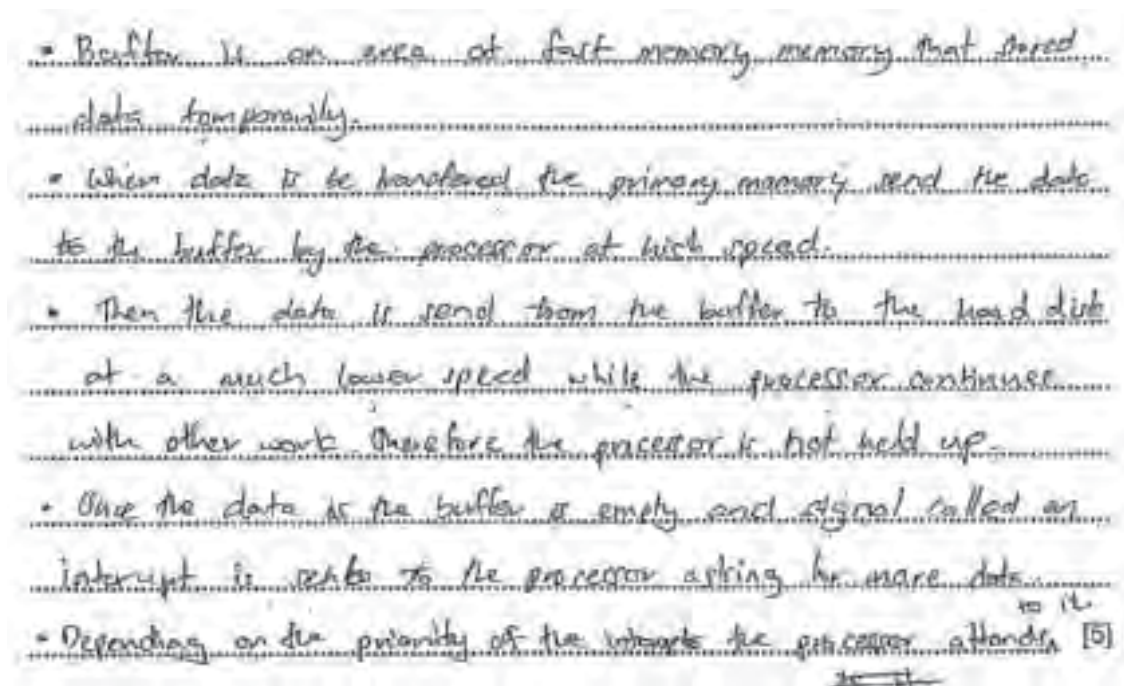 • Buffer is an area of fast memory memory that stored
data temporarily.
• When data is be transfered the primary memory send the data
to the buffer by the processor at high speed.
• Then the data is send from the buffer to the hard disk
at a much lower speed while the processor continues
with other work. Therefore the processor is not held up.
• Once the data is the buffer is empty and signal called an
interupt is to the processor asking for more data.
• Depending on the priority of the the processor attends to it [5]